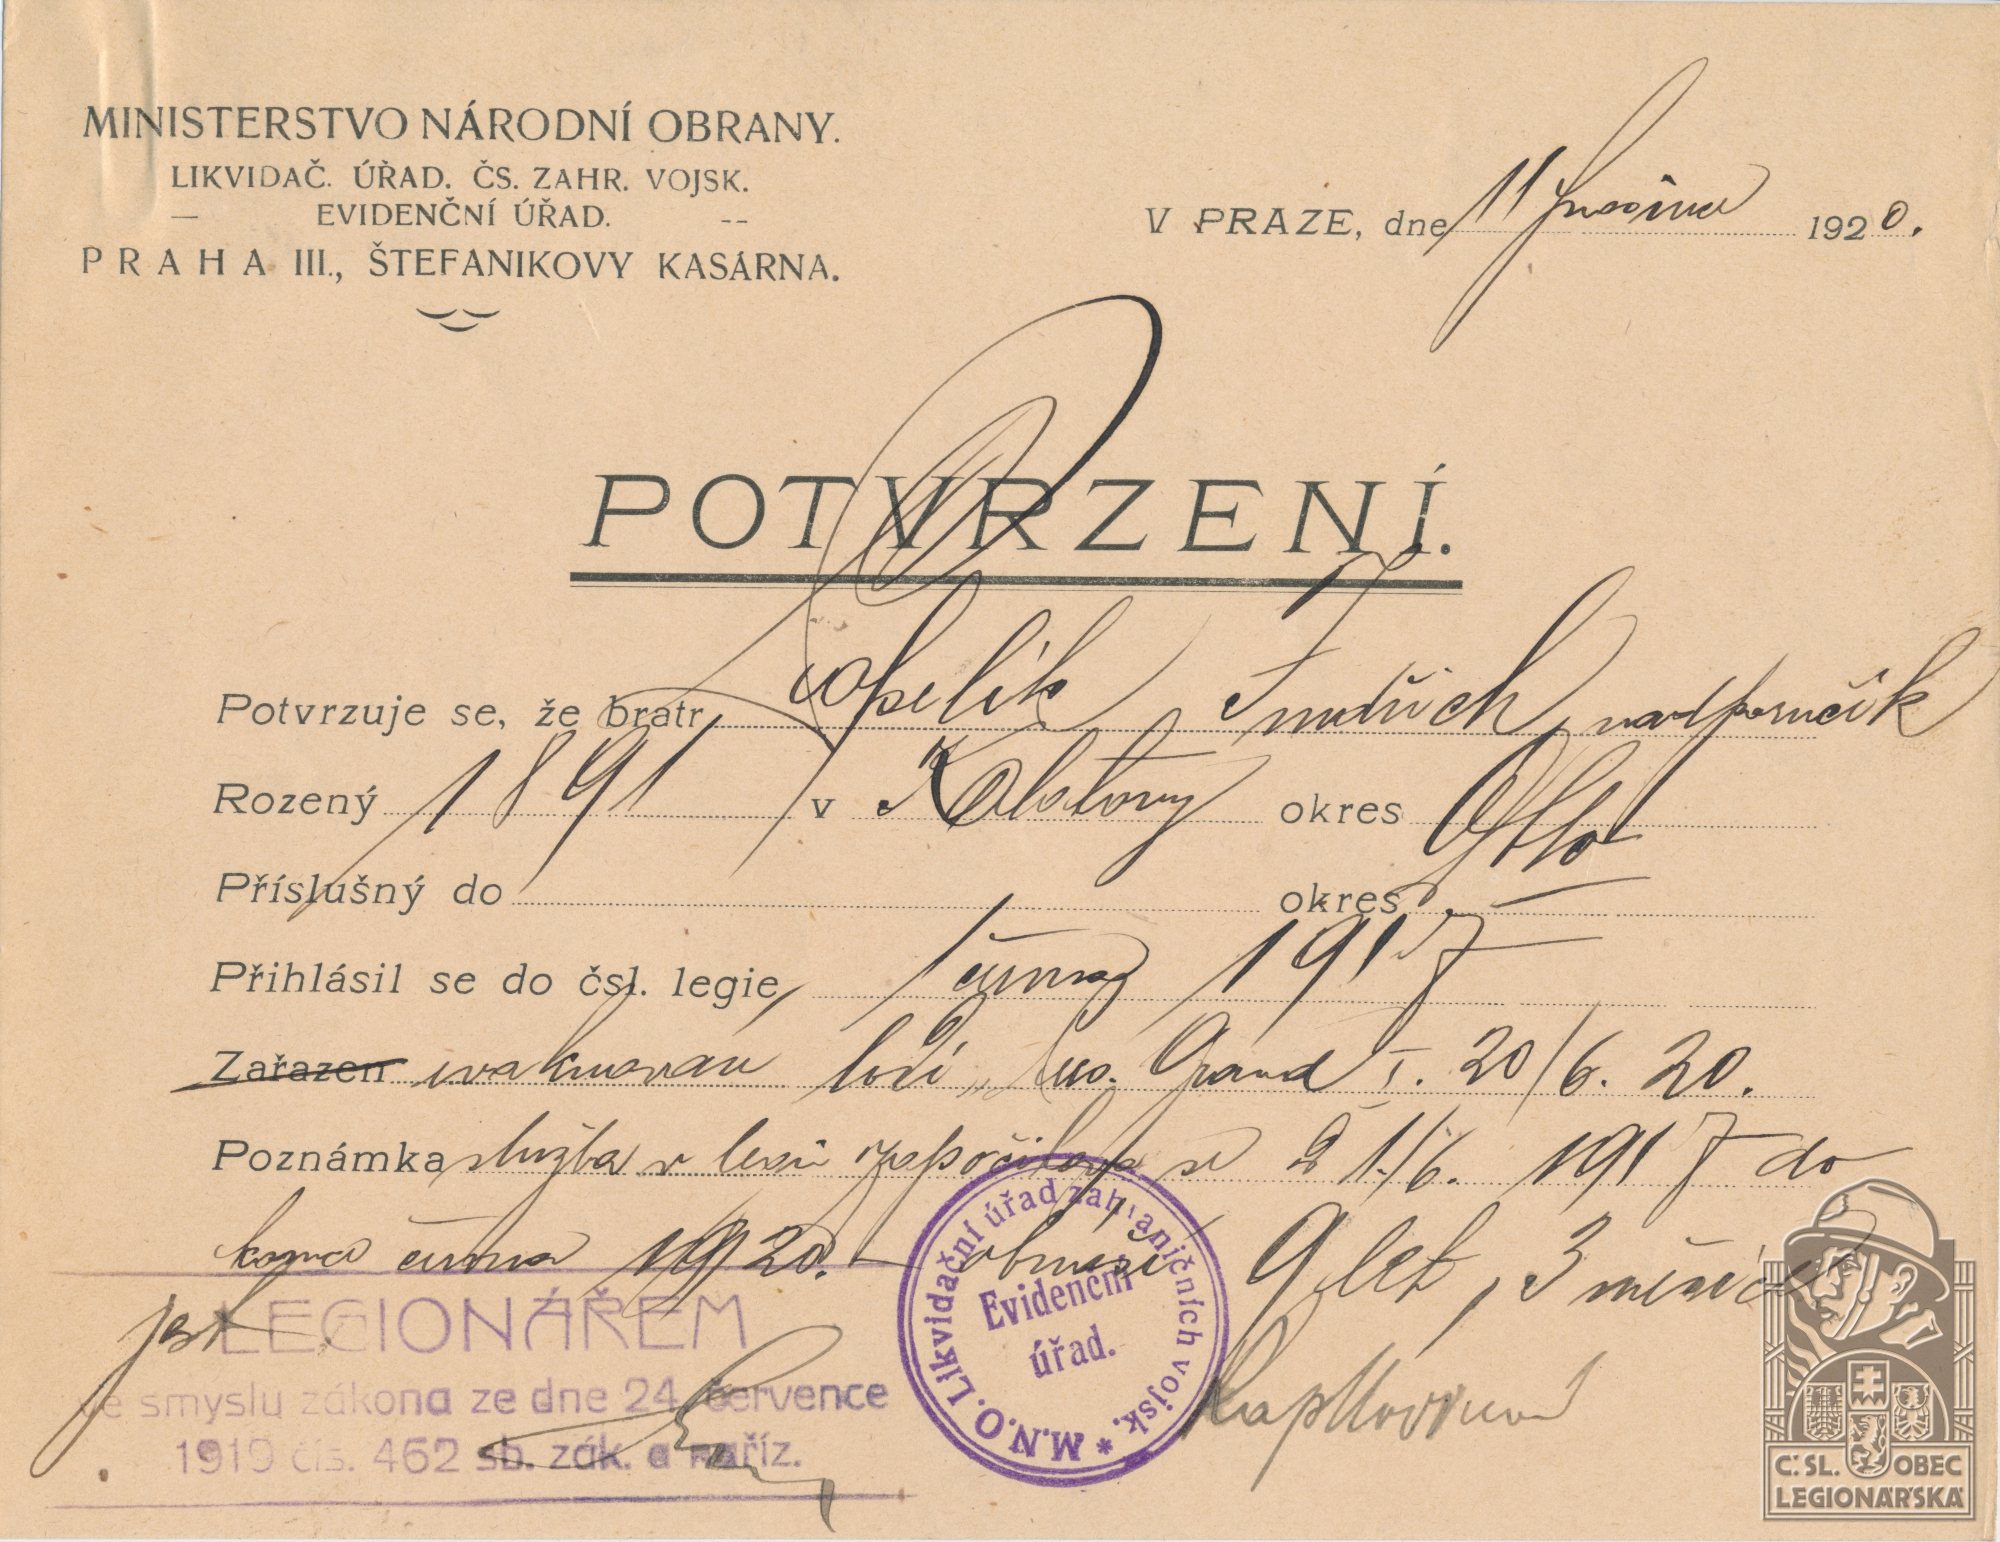 MINISTERSTVO NÁRODNÍ OBRANY.
LIKVIDAČ. ÚŘAD. ČS. ZAHR. VOJSK.
— EVIDENČNÍ ÚŘAD. --
PRAHA III., ŠTEFANIKOVY KASÁRNA.
V PRAZE, dne 11 prosince 1920.
POTVRZENÍ.
Potvrzuje se, že bratr Jindřich, nadporučík
Rozený 1891 v okres
Příslušný do okres
Přihlásil se do čsl. legie, 1 června 1917
Zařazen evakuován lodí „ Grand I. 20/6. 20.
Poznámka služba v legii započítává se od 1./6. 1917 do
konce června 1920. — obnáší 9 let, 3 měsíce
jest LEGIONÁŘEM
ve smyslu zákona ze dne 24 července
1919 čís. 462 sb. zák. a naříz.
M.N.O. Likvidační úřad zahraničních vojsk. *
Evidenční
úřad.
Č.SL. OBEC
LEGIONÁŘSKÁ